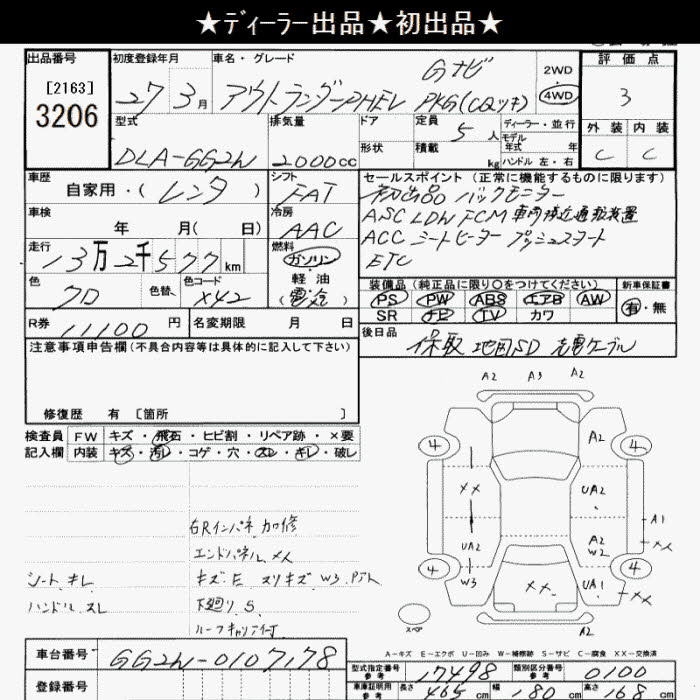 ★ディーラー出品★初出品★
出品番号
[2163]
3206
初度登録年月
27年3月
車名・グレード
アウトランダーPHEV
Gナビ
PKG(CDツキ)
2WD
4WD
評価点
3
外装 内装
C C
型式
DLA-GG2W
排気量
2000cc
ドア
形状
定員 5人
積載 kg
ディーラー・並行
モデル
年式 年
ハンドル 左・右
車歴
自家用・(レンタ)
シフト
FAT
セールスポイント(正常に機能するものに限ります)
初出品 バックモニター
ASC LDW FCM 車両接近通報装置
ACC シートヒーター プッシュスタート
ETC
車検
年 月( 日)
冷房
AAC
走行
13万2千577km
燃料
ガソリン
・
軽油
(電気)
色
クロ
色替
色コード
X42
装備品(純正品に限り○をつけてください)
PS PW ABS エアB AW
SR ナビ TV カワ
新車保証書
有・無
R券
11100円
名変期限 月 日
後日品
保取 地図SD 充電ケーブル
注意事項申告欄(不具合内容等は具体的に記入して下さい)
修復歴 有 [箇所 ]
検査員
記入欄
FW キズ・飛石・ヒビ割・リペア跡・×要
内装 キズ・汚レ・コゲ・穴・スレ・キレ・破レ
右Rインパネ 加修
エンドパネル メメ
シート キレ
キズ・E スリキズ W3
ハンドル スレ
下廻り S
ルーフキャリア付
A2 A3 A2
4
A2
4
××
UA2
A1
UA2
A2
W2
××
4
W3
××
UA1
4
××
スペア
A2
A-キズ E-エクボ U-凹み W-補修跡 S-サビ C-腐食 XX-交換済
車台番号
GG2W-0107178
登録番号
型式指定番号
参考
17498
類別区分番号
参考
0100
車庫証明用
参考
長さ 465cm
幅 180cm
高さ 168cm